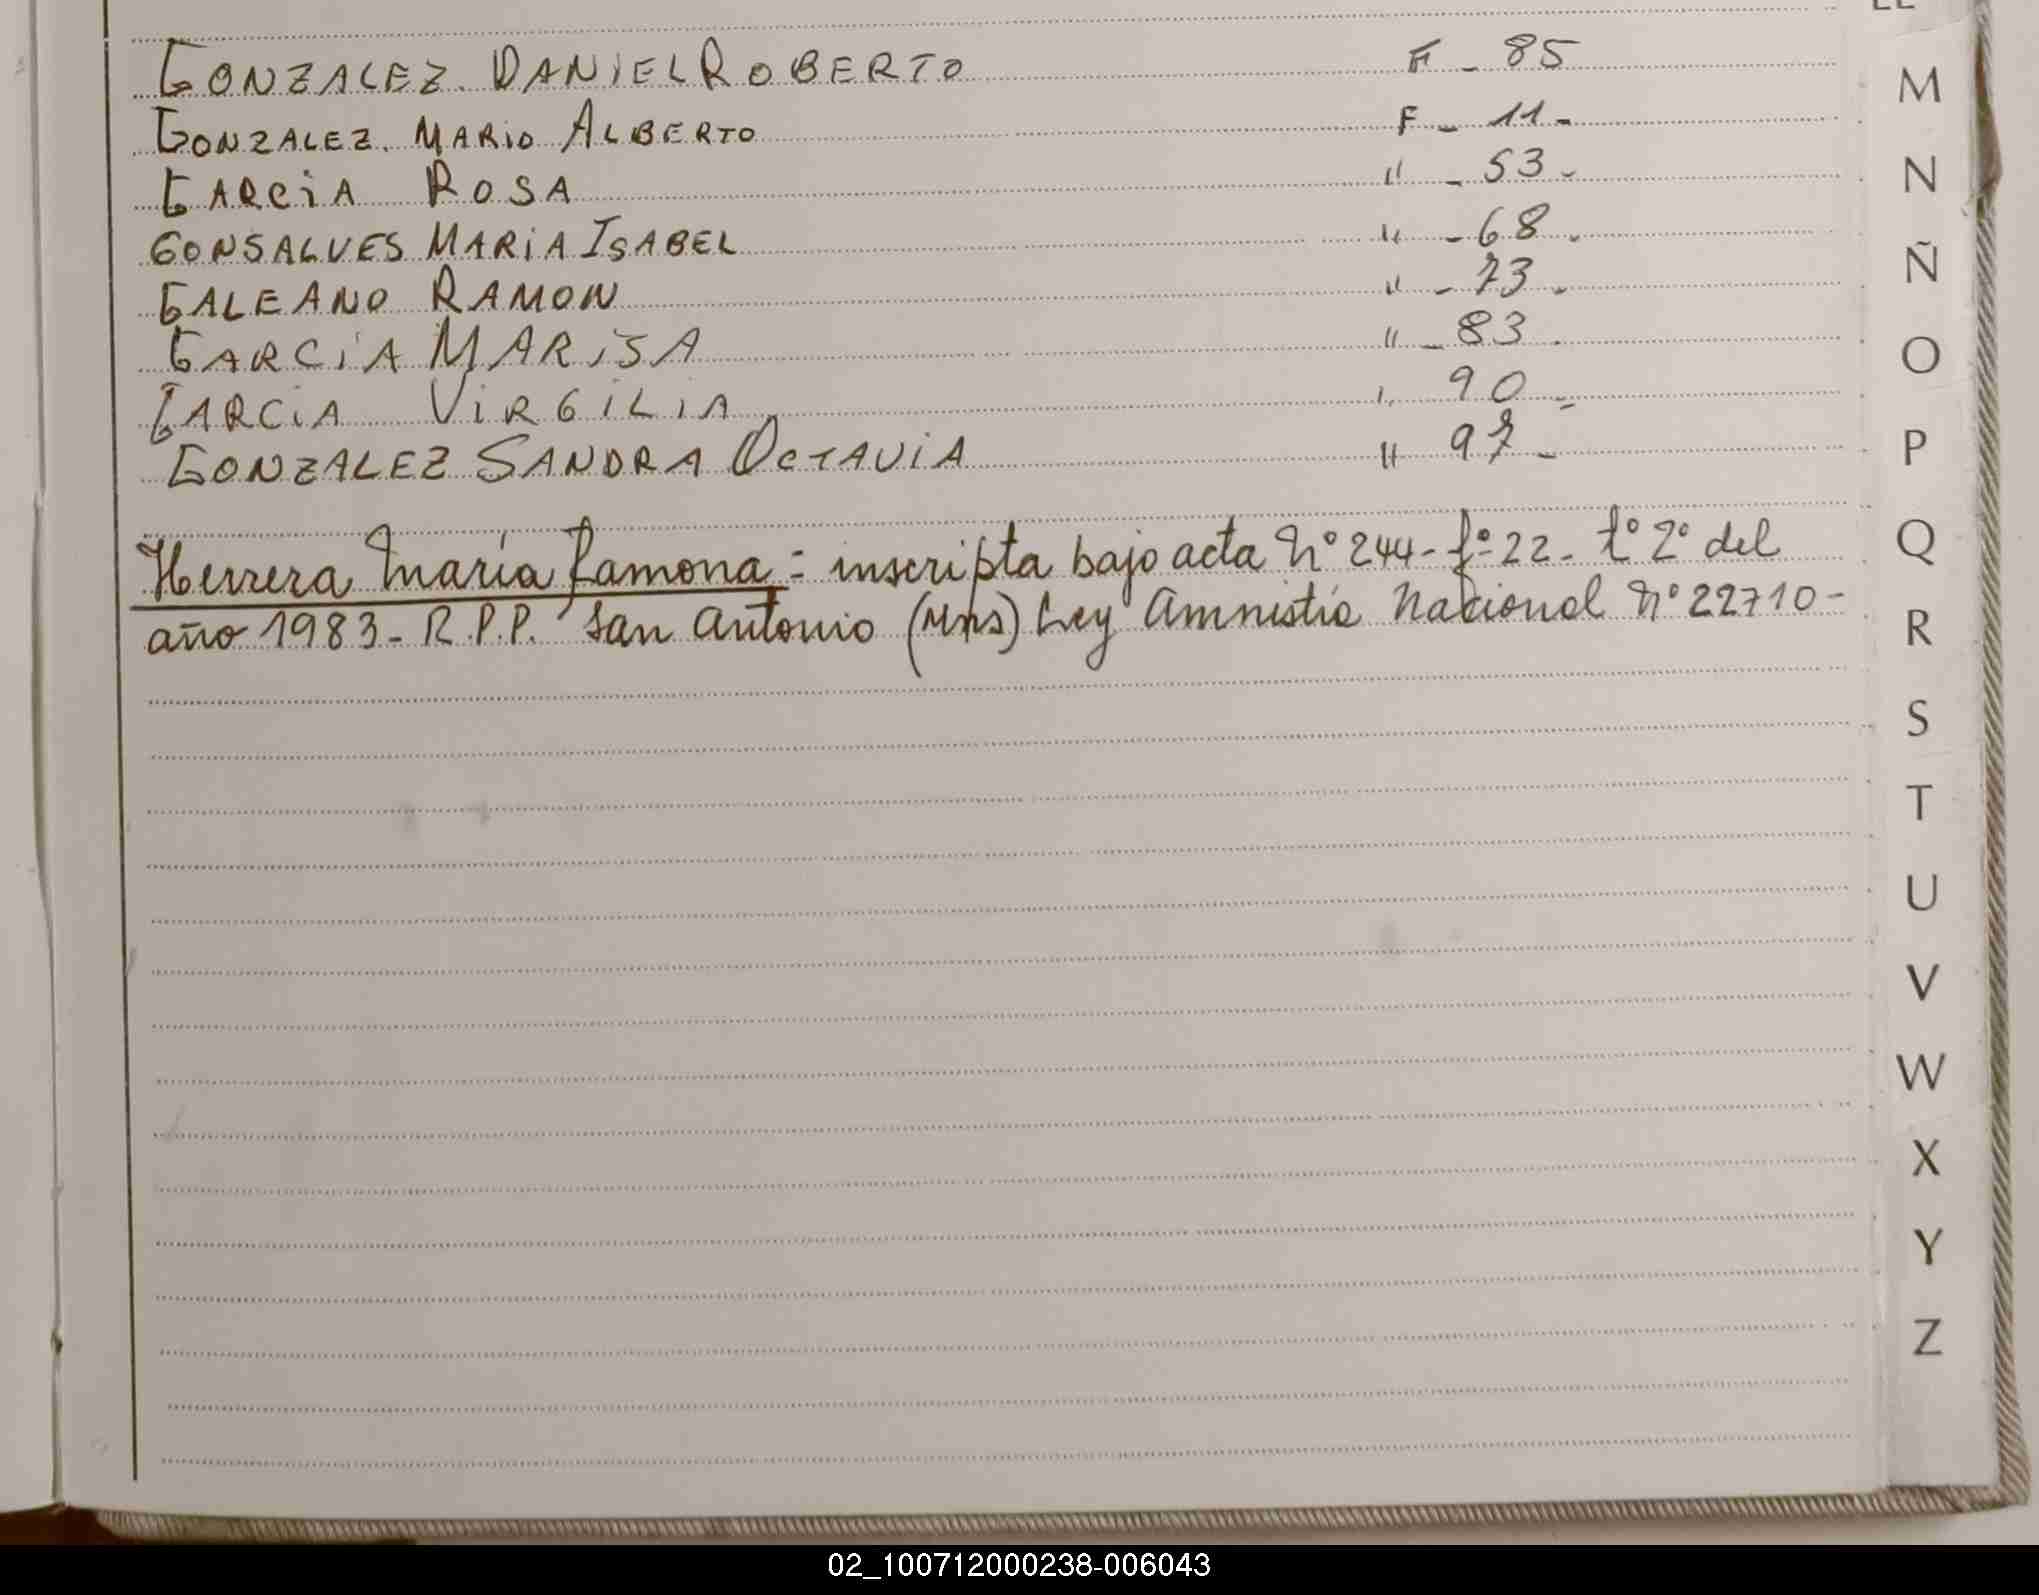 GONZALEZ DANIEL ROBERTO F - 85
GONZALEZ. MARIO ALBERTO F - 11 -
GARCIA ROSA " - 53 -
GONSALVES MARIA ISABEL " - 68 -
GALEANO RAMON " - 73 -
GARCIA MARISA " - 83 -
GARCIA VIRGILIA " 90 -
GONZALEZ SANDRA OCTAVIA " 97 -
Herrera María Ramona = inscripta bajo acta Nº 244 - fº 22 - tº 2º del
año 1983 - R.P.P. San Antonio (Mns) Ley Amnistía Nacional Nº 22710 -
M
N
Ñ
O
P
Q
R
S
T
U
V
W
X
Y
Z
02_100712000238-006043